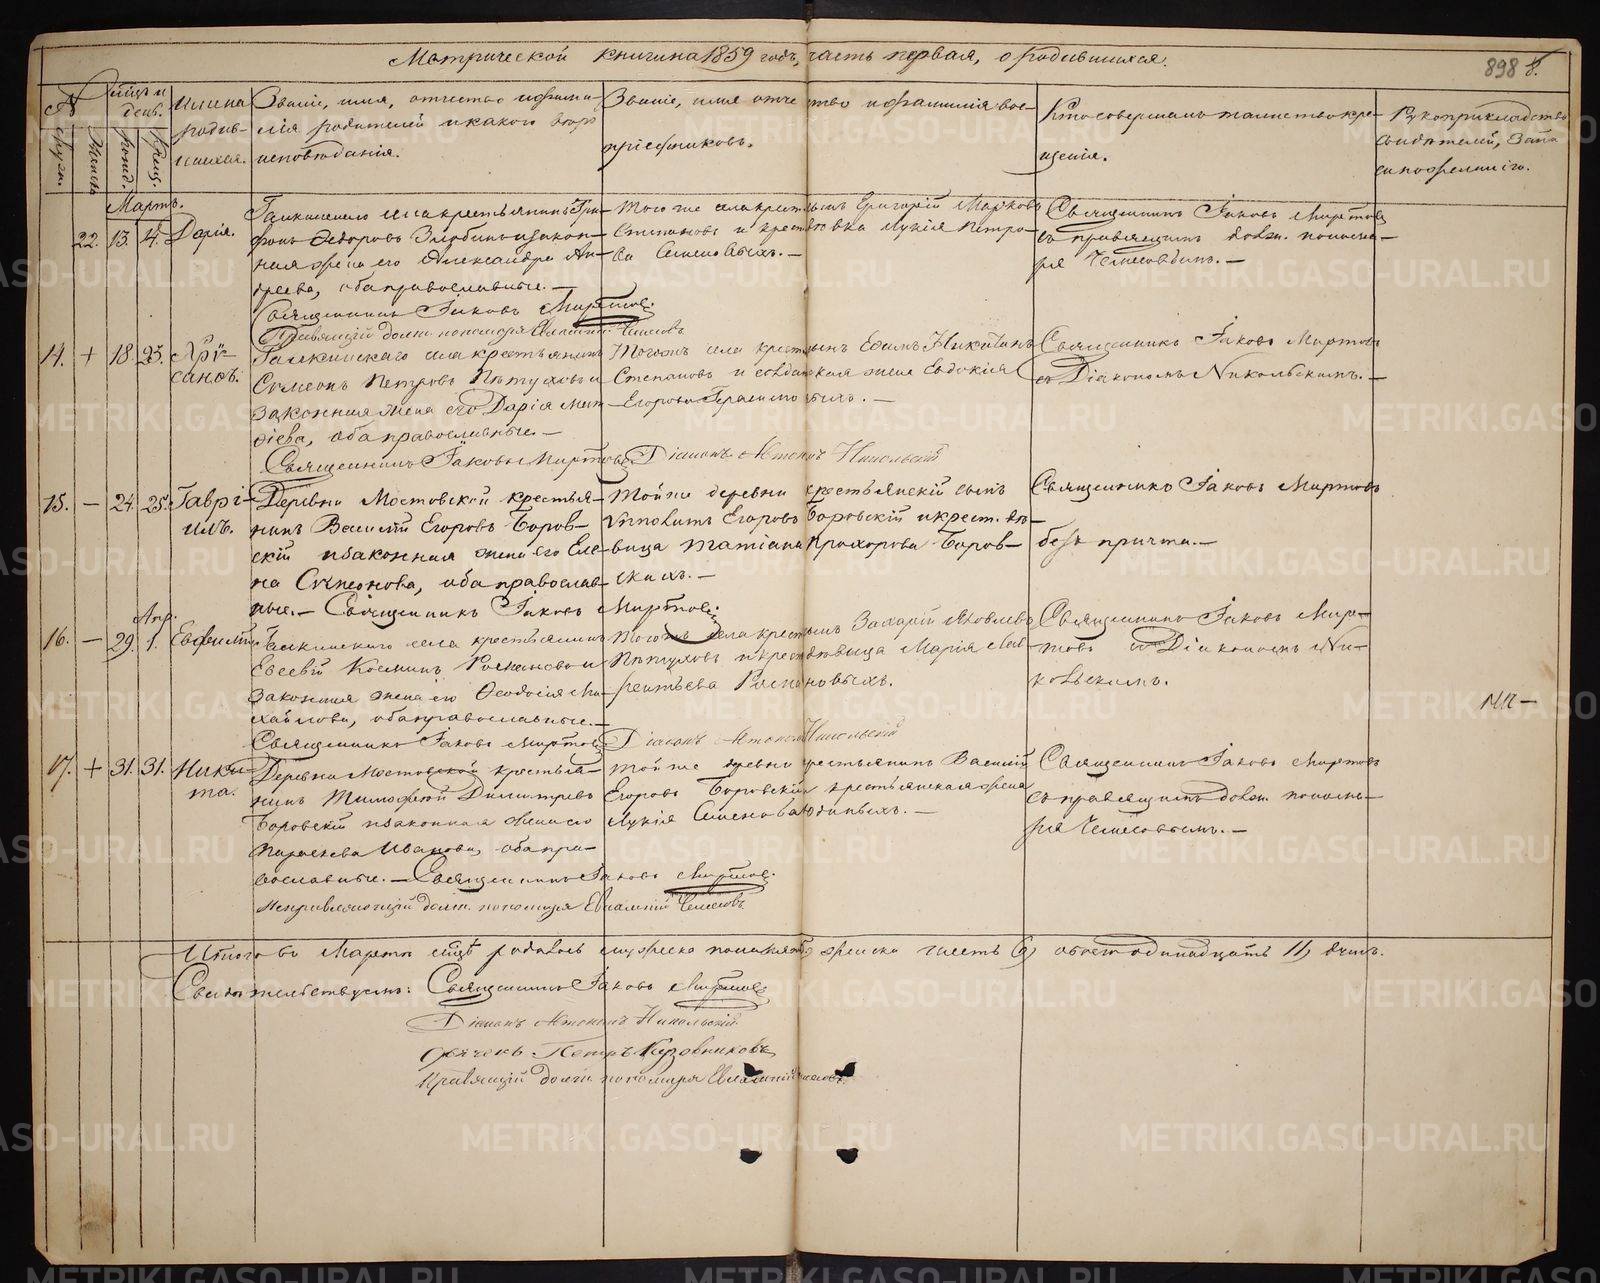 Метрической книги на 1859 годъ, часть первая, о родившихся.
898
№
Мѣсяцъ и день.
Мужск.
Женск.
рожд.
Крещ.
Имена родив-
шихся.
Званіе, имя, отчество и фами-
лія родителей и какого вѣро
исповѣданія.
Званіе, имя отчество и фамилія вос-
пріемниковъ.
Кто совершалъ таинство кре-
щенія.
Рукоприкладство
свидѣтелей, запи
си по желанію.
Мартъ.
22. 13. 14. Дарія.
села крестьянинъ Три-
фонъ Ѳедоровъ и закон-
ная жена его Александра Ан-
дреева, оба православные. —
Священникъ Іаковъ Миртовъ.
Правящій долж. пономаря
Того же села крестьянинъ Григорій Марковъ
Степановъ и крест. дѣвка Лукія Петро-
ва Семеновыхъ. —
Священникъ Іаковъ Миртовъ
съ правящимъ долж. понома-
ря
14. + 18. 23. Хрі-
санѳъ.
села крестьянинъ
Симеонъ Петровъ Пѣтуховъ и
законная жена его Дарія Мат-
ѳіева, оба православные. —
Священникъ Іаковъ Миртовъ Діаконъ Автономъ Никольскій
Того жъ села крестьянинъ Ефимъ Никитинъ
Степановъ и солдатская жена Евдокія
Егорова Герасимовыхъ. —
Священникъ Іаковъ Миртовъ
съ Діакономъ Никольскимъ. —
15. — 24. 25. Гаврі-
илъ.
Деревни Мостовской крестья-
нинъ Василій Егоровъ Боров-
скій и законная жена его Еле-
на Симеонова, оба православ-
ные. — Священникъ Іаковъ Миртовъ.
Той же деревни крестьянскій сынъ
Ипполитъ Егоровъ Боровскій и крест. дѣ-
вица Татіана Прохорова Боров-
скихъ. —
Священникъ Іаковъ Миртовъ
безъ причта. —
Апр.
16. — 29. 1. Евфимій
села крестьянинъ
Евсевій Козминъ Романовъ и
законная жена его Ѳеодосія Ми-
хайлова, оба православные. —
Священникъ Іаковъ Миртовъ Діаконъ Автономъ Никольскій
Того жъ села крестьянинъ Захарій Яковлевъ
Пѣтуховъ и крест. дѣвица Марія Лав-
рентьева Романовыхъ.
Священникъ Іаковъ Мир-
товъ съ Діакономъ Ни-
кольскимъ.
17. + 31. 31. Ники-
та.
Деревни Мостовской крестья-
нинъ Тимофей Димитріевъ
Боровскій и законная жена его
Параскева Иванова, оба пра-
вославные. — Священникъ Іаковъ Миртовъ.
Исправляющій долж. пономаря
Той же деревни крестьянинъ Василій
Егоровъ Боровскій и крестьянская жена
Лукія Семенова Юдиныхъ. —
Священникъ Іаковъ Миртовъ
съ правящимъ долж. понома-
ря
Итого въ Мартѣ мѣсяцѣ родилось мужеска пола пять женска шесть 6, обоего одинадцать 11, душъ.
Свидѣтельствуемъ: Священникъ Іаковъ Миртовъ
Діаконъ Автономъ Никольскій
Дьячекъ Петръ
Правящій долж. пономаря